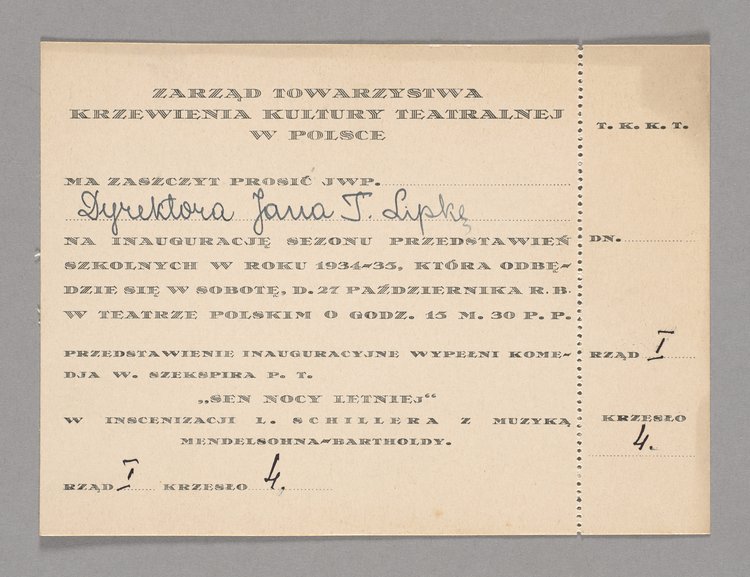 ZARZĄD TOWARZYSTWA
KRZEWIENIA KULTURY TEATRALNEJ
W POLSCE
MA ZASZCZYT PROSIĆ JWP.
Dyrektora Jana T. Lipkę
NA INAUGURACJĘ SEZONU PRZEDSTAWIEŃ
SZKOLNYCH W ROKU 1934-35, KTÓRA ODBĘ-
DZIE SIĘ W SOBOTĘ, D. 27 PAŹDZIERNIKA R. B.
W TEATRZE POLSKIM O GODZ. 15 M. 30 P. P.
PRZEDSTAWIENIE INAUGURACYJNE WYPEŁNI KOME-
DJA W. SZEKSPIRA P. T.
„SEN NOCY LETNIEJ“
W INSCENIZACJI L. SCHILLERA Z MUZYKĄ
MENDELSOHNA-BARTHOLDY.
RZĄD I KRZESŁO 4.
T. K. K. T.
DN.
RZĄD I
KRZESŁO
4.